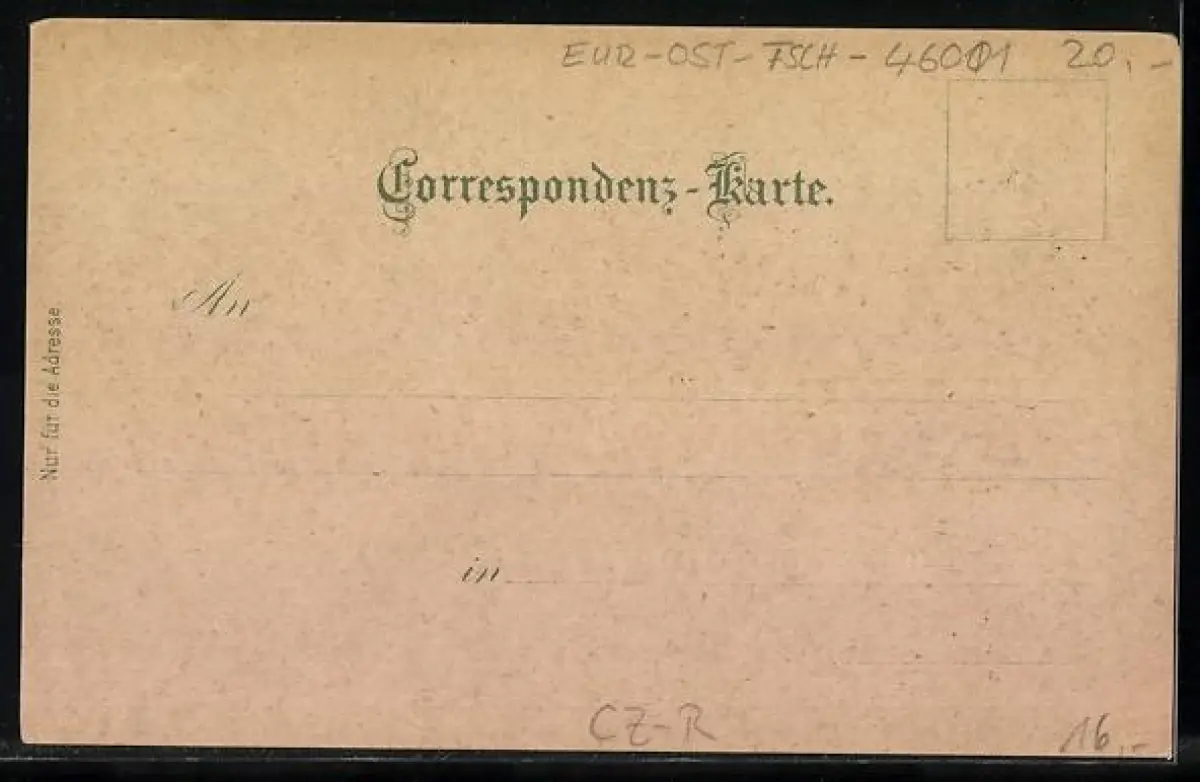 EUR-OST-TSCH-46001 20,-
Correspondenz-Karte.
An
Nur für die Adresse.
in
CZ-R
16,-